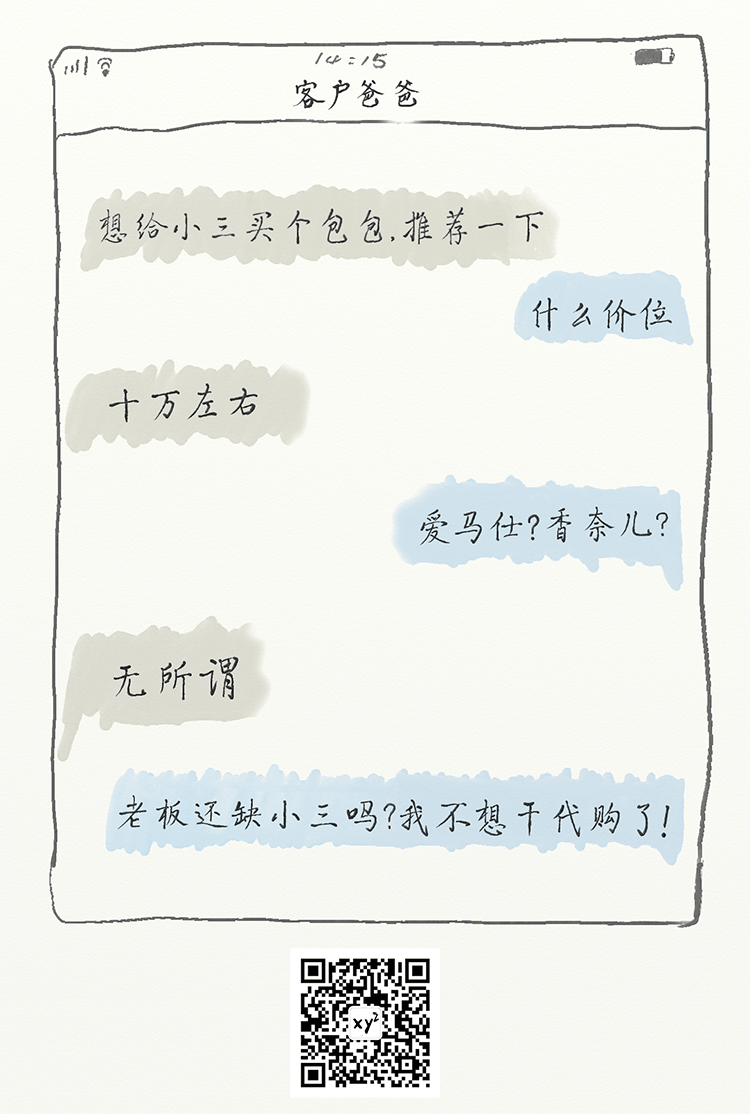 14:15
客户爸爸
想给小三买个包包,推荐一下
什么价位
十万左右
爱马仕?香奈儿?
无所谓
老板还缺小三吗?我不想干代购了!
xy²